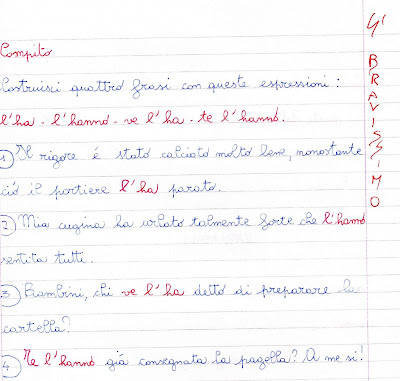 Compito
Costruisci quattro frasi con queste espressioni:
l'ha - l'hanno - ve l'ha - te l'hanno.
1 Il rigore é stato calciato molto bene, nonostante
ciò il portiere l'ha parato.
2 Mia cugina ha urlato talmente forte che l'hanno
sentita tutti.
3 Bambini, chi ve l'ha detto di preparare la
cartella?
4 Te l'hanno già consegnata la pagella? A me si!
BRAVISSIMO